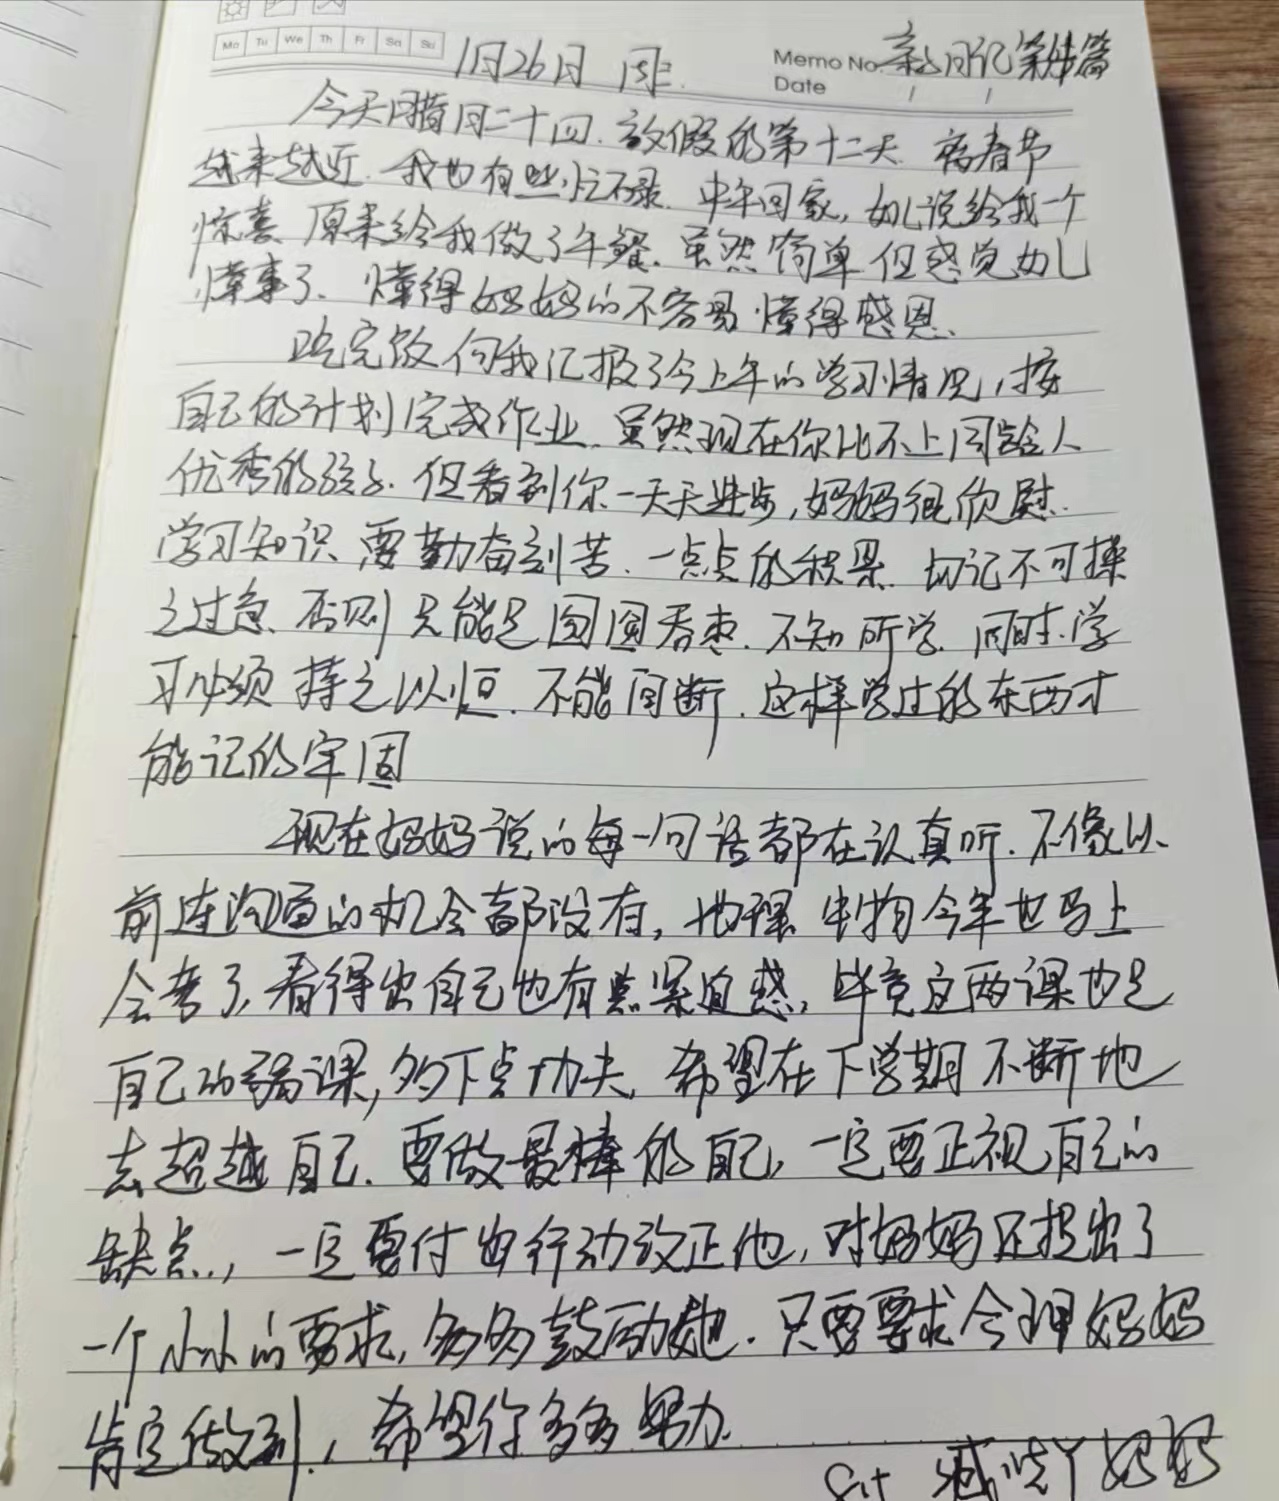 Mo Tu We Th Fr Sa Su
Memo No. 亲子日记第十篇
Date / /
1月26日 周三
今天腊月二十四.放假的第十二天.离春节
越来越近.我也有些忙碌.中午回家,女儿说给我一个
惊喜.原来给我做了午餐.虽然简单但感觉女儿
懂事了、懂得妈妈的不容易.懂得感恩.
吃完饭向我汇报了今上午的学习情况,按
自己的计划完成作业.虽然现在你比不上同龄人
优秀的孩子.但看到你一天天进步,妈妈很欣慰.
学习知识要勤奋刻苦.一点点的积累.切记不可操
之过急.否则只能是囫囵吞枣.不知所学.同时.学
习必须持之以恒.不能间断.这样学过的东西才
能记的牢固
现在妈妈说的每一句话都在认真听.不像以
前连沟通的机会都没有,地理 生物今年也马上
会考了,看得出自己也有点紧迫感,毕竟这两课也是
自己的弱课,多下点功夫.希望在下学期不断地
去超越自己.要做最棒的自己,一定要正视自己的
缺点,一定要付出行动改正他,对妈妈还提出了
一个小小的要求,多多鼓励她.只要要求合理妈妈
肯定做到,希望你多多努力.
妈妈